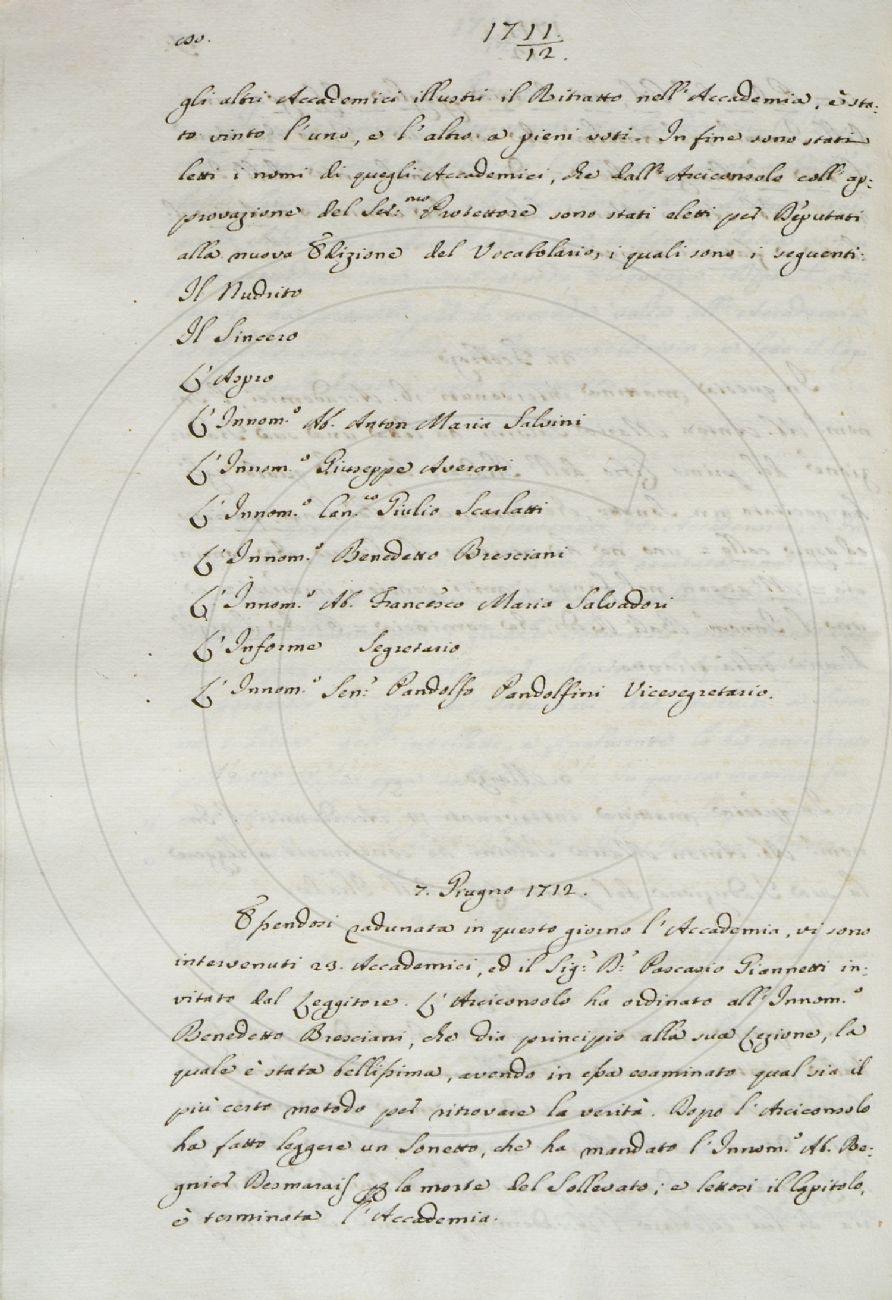 1711/12.
gli altri Accademici illustri il Ritratto nell'Accademia, è sta:
to vinto l'uno, e l'altro a pieni voti. In fine sono stati
letti i nomi di quegli Accademici, che dall'Arciconsolo coll'ap:
provazione del Ser:mo Protettore sono stati eletti per Deputati
alla nuova Edizione del Vocabolario, i quali sono i seguenti:
Il Nudrito
Il Sincero
L'Aspro
L'Innom.o Ab. Anton Maria Salvini
L'Innom.o Giuseppe Averani
L'Innom.o Can.co Giulio Scarlatti
L'Innom.o Benedetto Bresciani
L'Innom.o Ab. Francesco Maria Salvadori
L'Informe Segretario
L'Innom.o Sen.r Pandolfo Pandolfini Vicesegretario.
7. Giugno 1712.
Essendosi radunata in questo giorno l'Accademia, vi sono
intervenuti 23. Accademici, ed il Sig.r D.r Pascasio Giannetti in:
vitato dal Leggitore. L'Arciconsolo ha ordinato all'Innom.o
Benedetto Bresciani, che dia principio alla sua Lezione, la
quale è stata bellissima, avendo in essa esaminato qual sia il
più certo metodo per ritrovare la verità. Dopo l'Arciconsolo
ha fatto leggere un Sonetto, che ha mandato l'Innom.o Ab. Re:
gnier Desmarais per la morte del Sollevato; e lettosi il Capitolo,
è terminata l'Accademia.